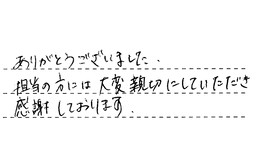 ありがとうございました.
担当の方には大変親切にしていただき
感謝しております.